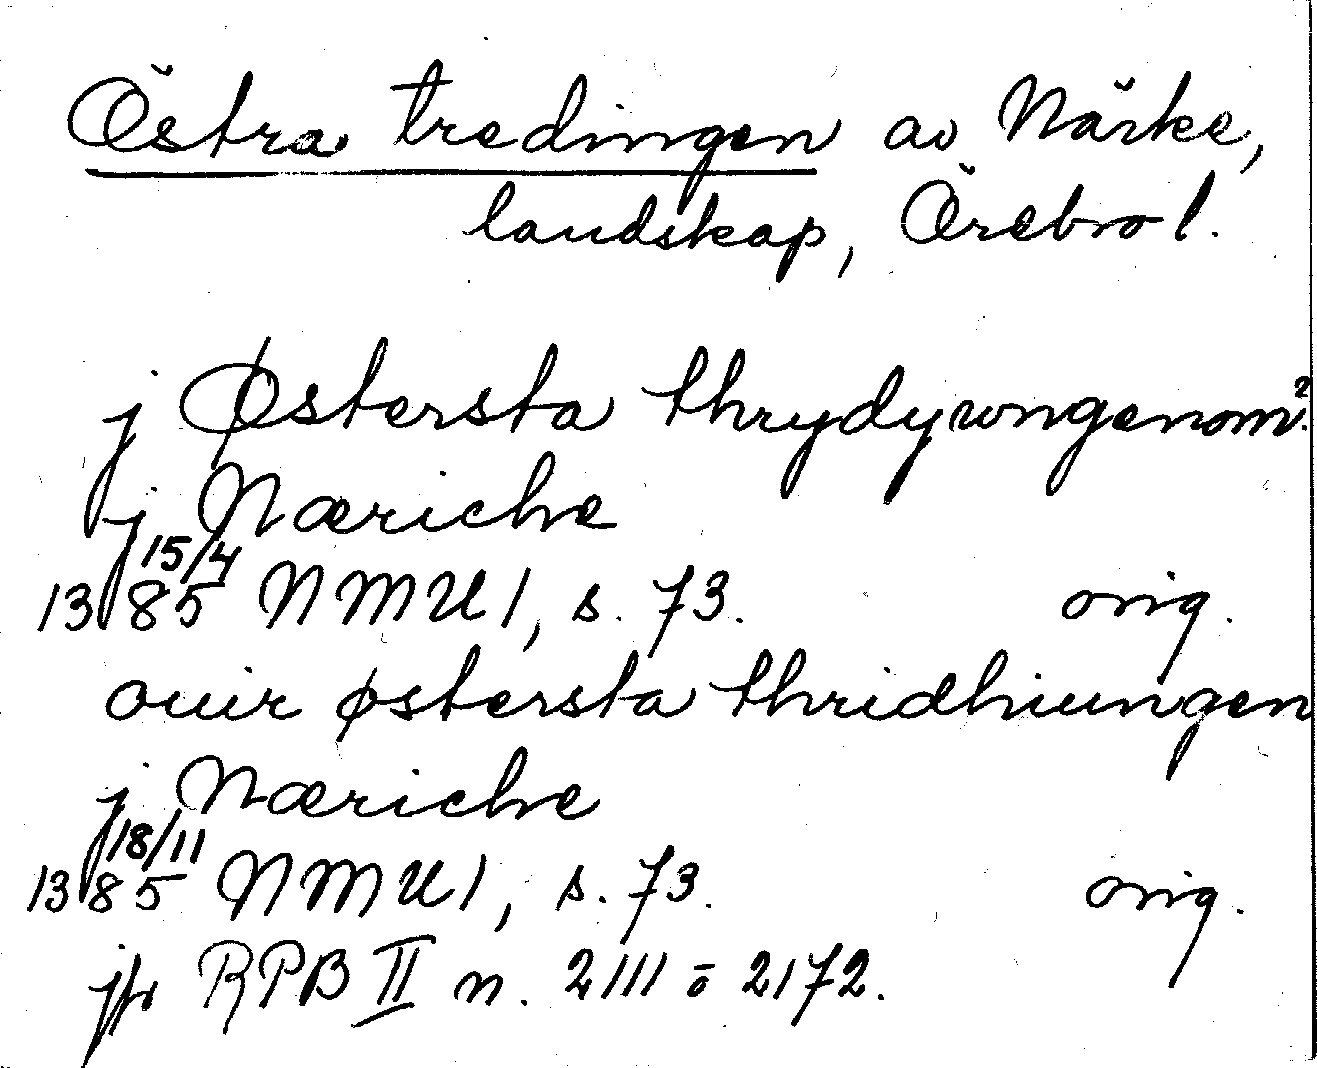 Östra tredingen av Närke,
landskap, Örebro l.
j Østersta thrydywngenom?
j Næriche
15/4
1385 NMU 1, s. 73. orig.
ouir østersta thridhiungen
j Næriche
18/11
1385 NMU 1, s. 73. orig.
jfr RPB II n. 2111 o 2172.